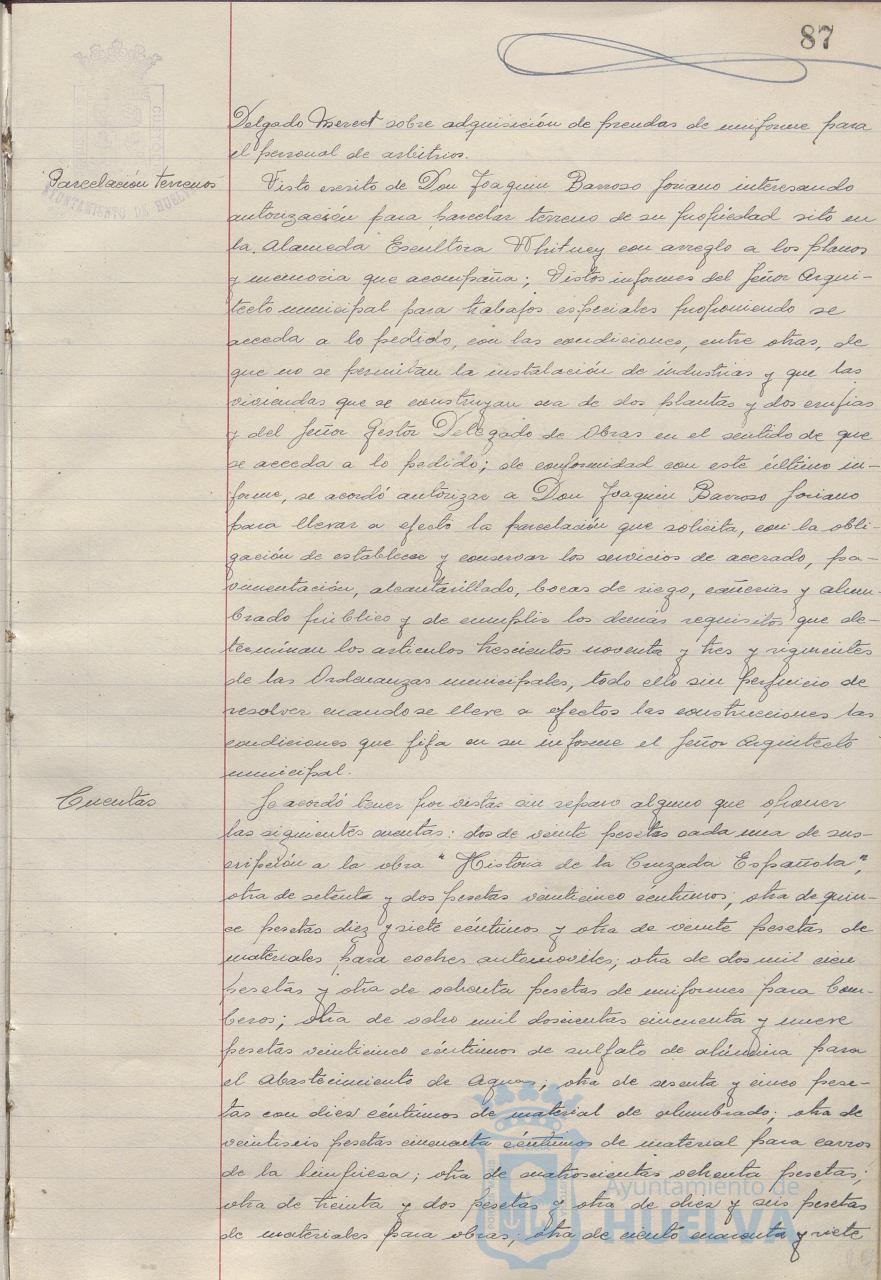 87
Delgado Merect sobre adquisición de prendas de uniforme para
el personal de arbitrios.
Parcelación terrenos
Visto escrito de Don Joaquin Barroso Soriano interesando
autorización para parcelar terreno de su propiedad sito en
la Alameda Escultora Whitney con arreglo a los planos
y memoria que acompaña; Vistos informes del Señor Arqui-
tecto municipal para trabajos especiales proponiendo se
acceda a lo pedido, con las condiciones, entre otras, de
que no se permitan la instalación de industrias y que las
viviendas que se construyan sea de dos plantas y dos crujias
y del Señor Gestor Delegado de Obras en el sentido de que
se acceda a lo pedido; de conformidad con este último in-
forme, se acordó autorizar a Don Joaquin Barroso Soriano
para llevar a efecto la parcelación que solicita, con la obli-
gación de establecer y conservar los servicios de acerado, pa-
vimentación, alcantarillado, bocas de riego, cañerias y alum-
brado público y de cumplir los demás requisitos que de-
terminan los articulos trescientos noventa y tres y siguientes
de las Ordenanzas municipales, todo ello sin perjuicio de
resolver cuando se lleve a efectos las construcciones las
condiciones que fija en su informe el Señor Arquitecto
municipal.
Cuentas
Se acordó tener por vistas sin reparo alguno que oponer
las siguientes cuentas: dos de veinte pesetas cada una de sus-
cripción a la obra "Historia de la Cruzada Española",
otra de setenta y dos pesetas veinticinco céntimos; otra de quin-
ce pesetas diez y siete céntimos y otra de veinte pesetas de
materiales para coches automoviles; otra de dos mil cien
pesetas y otra de ochenta pesetas de uniformes para Bom-
beros; otra de ocho mil doscientas cincuenta y nueve
pesetas veinticinco céntimos de sulfato de alúmina para
el Abastecimiento de Aguas; otra de sesenta y cinco pese-
tas con diez céntimos de material de alumbrado; otra de
veintiseis pesetas cincuenta céntimos de material para carros
de la limpiesa; otra de cuatroscientas ochenta pesetas;
otra de treinta y dos pesetas y otra de diez y seis pesetas
de materiales para obras; otra de ciento cuarenta y siete
Ayuntamiento de
HUELVA